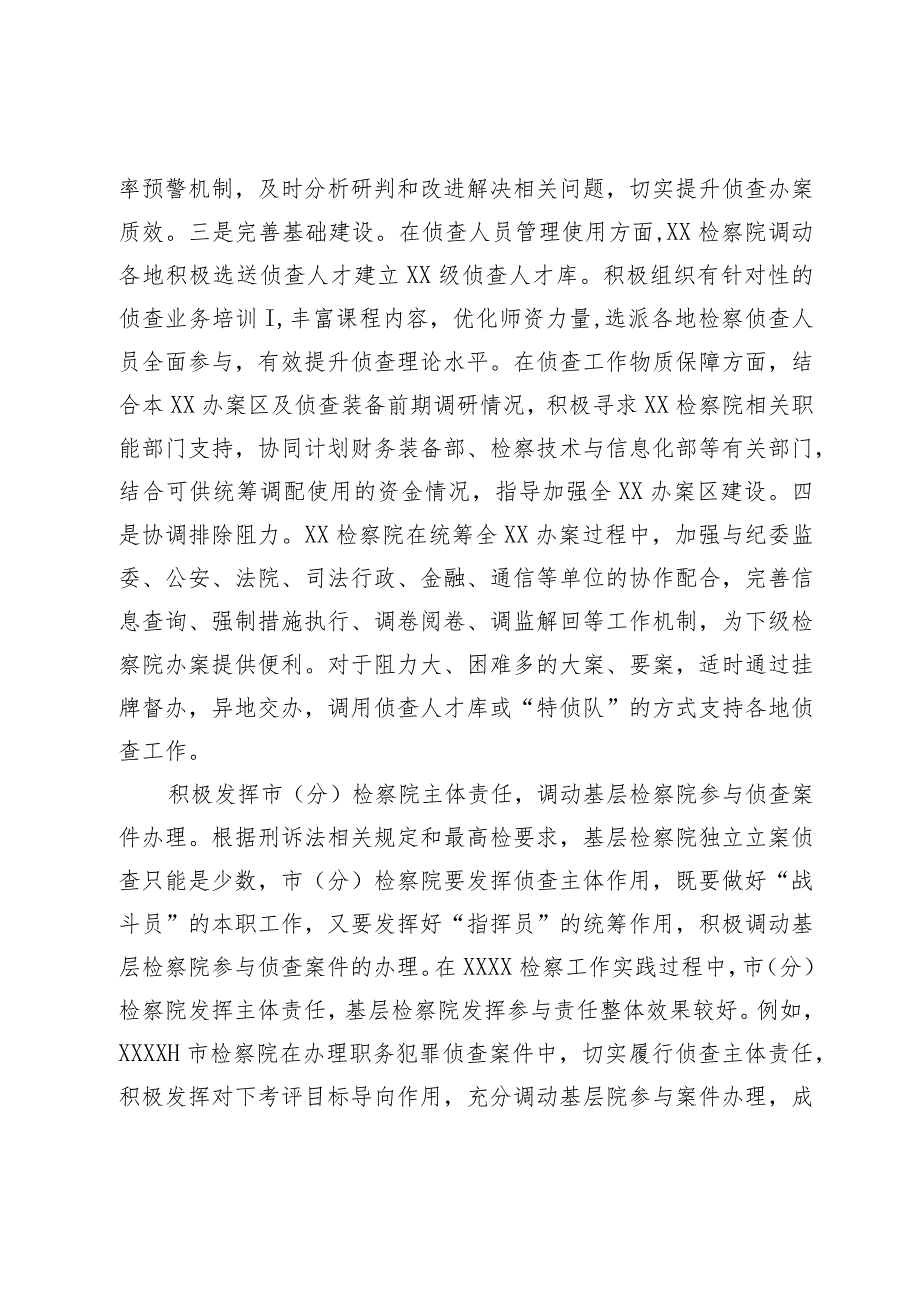 率预警机制，及时分析研判和改进解决相关问题，切实提升侦查办案
质效。三是完善基础建设。在侦查人员管理使用方面,XX 检察院调动
各地积极选送侦查人才建立 XX 级侦查人才库。积极组织有针对性的
侦查业务培训 I,丰富课程内容，优化师资力量,选派各地检察侦查人
员全面参与，有效提升侦查理论水平。在侦查工作物质保障方面，结
合本 XX 办案区及侦查装备前期调研情况，积极寻求 XX 检察院相关职
能部门支持，协同计划财务装备部、检察技术与信息化部等有关部门，
结合可供统筹调配使用的资金情况，指导加强全 XX 办案区建设。四
是协调排除阻力。XX 检察院在统筹全 XX 办案过程中，加强与纪委监
委、公安、法院、司法行政、金融、通信等单位的协作配合，完善信
息查询、强制措施执行、调卷阅卷、调监解回等工作机制，为下级检
察院办案提供便利。对于阻力大、困难多的大案、要案，适时通过挂
牌督办，异地交办，调用侦查人才库或“特侦队”的方式支持各地侦
查工作。
积极发挥市（分）检察院主体责任，调动基层检察院参与侦查案
件办理。根据刑诉法相关规定和最高检要求，基层检察院独立立案侦
查只能是少数，市（分）检察院要发挥侦查主体作用，既要做好“战
斗员”的本职工作，又要发挥好“指挥员”的统筹作用，积极调动基
层检察院参与侦查案件的办理。在 XXXX 检察工作实践过程中，市（分）
检察院发挥主体责任，基层检察院发挥参与责任整体效果较好。例如，
XXXXH 市检察院在办理职务犯罪侦查案件中，切实履行侦查主体责任，
积极发挥对下考评目标导向作用，充分调动基层院参与案件办理，成